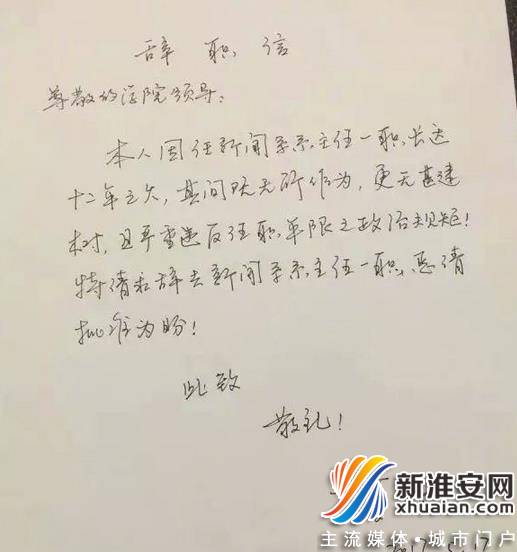 辞职信
尊敬的学院领导：
本人因任新闻系系主任一职长达
十二年之久，其间既无所作为，更无甚建
树，且严重违反任职年限之政治规矩！
特请和辞去新闻系系主任一职，恳请
批准为盼！
此致
敬礼！
新淮安网
xhuaian.com
主流媒体·城市门户